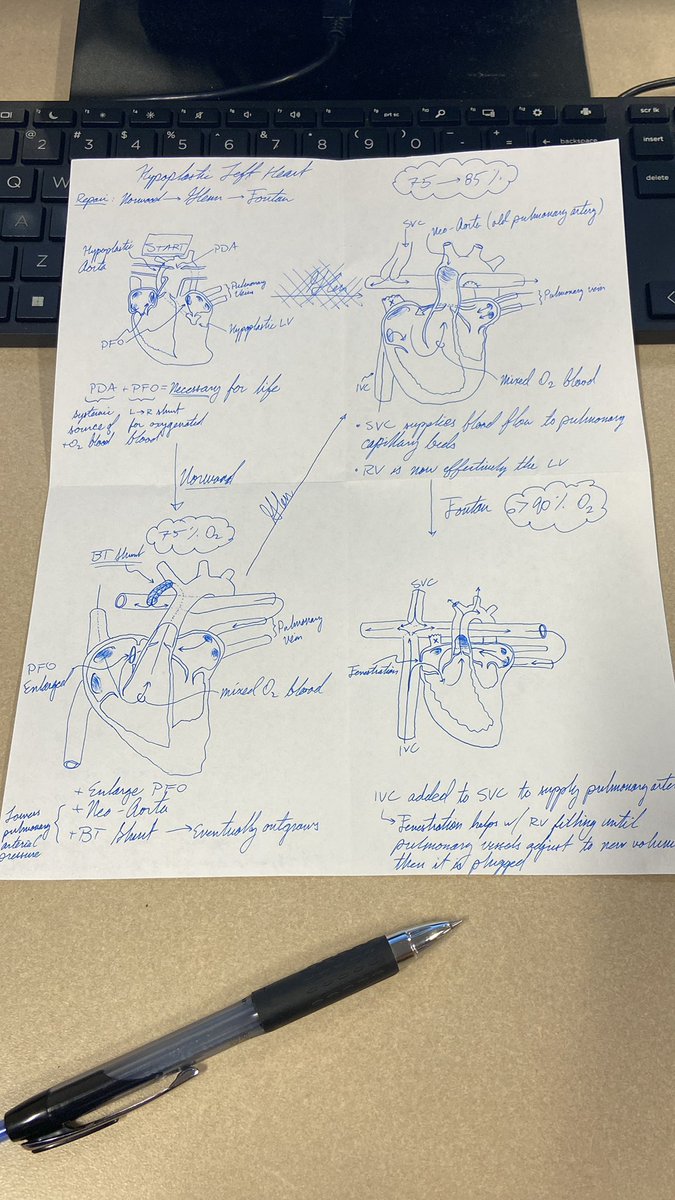 Hypoplastic Left Heart
Repair: Norwood → Glenn → Fontan
START
Hypoplastic
Aorta
PDA
Pulmonary
Veins
PFO
Hypoplastic LV
PDA + PFO = Necessary for life
systemic
source of
+O2 blood
L→R shunt
for oxygenated
blood
Norwood
Glenn
75 → 85%
SVC
Neo-Aorta (old pulmonary artery)
Pulmonary vein
IVC
mixed O2 blood
• SVC supplies blood flow to pulmonary
capillary beds
• RV is now effectively the LV
Fontan
>90% O2
75% O2
BT Shunt
Pulmonary
vein
PFO
Enlarged
mixed O2 blood
+ Enlarge PFO
+ Neo-Aorta
+ BT Shunt → Eventually outgrows
Lowers
pulmonary
arterial
pressure
Glenn
SVC
Fenestration
IVC
IVC added to SVC to supply pulmonary arter
↳ Fenestration helps w/ RV filling until
pulmonary vessels adjust to new volume
then it is plugged
prt sc
scr lk
insert
delete
backspace
@
2
#
3
$
4
%
5
^
6
&
7
*
8
(
9
)
0
Q
W
A
Z